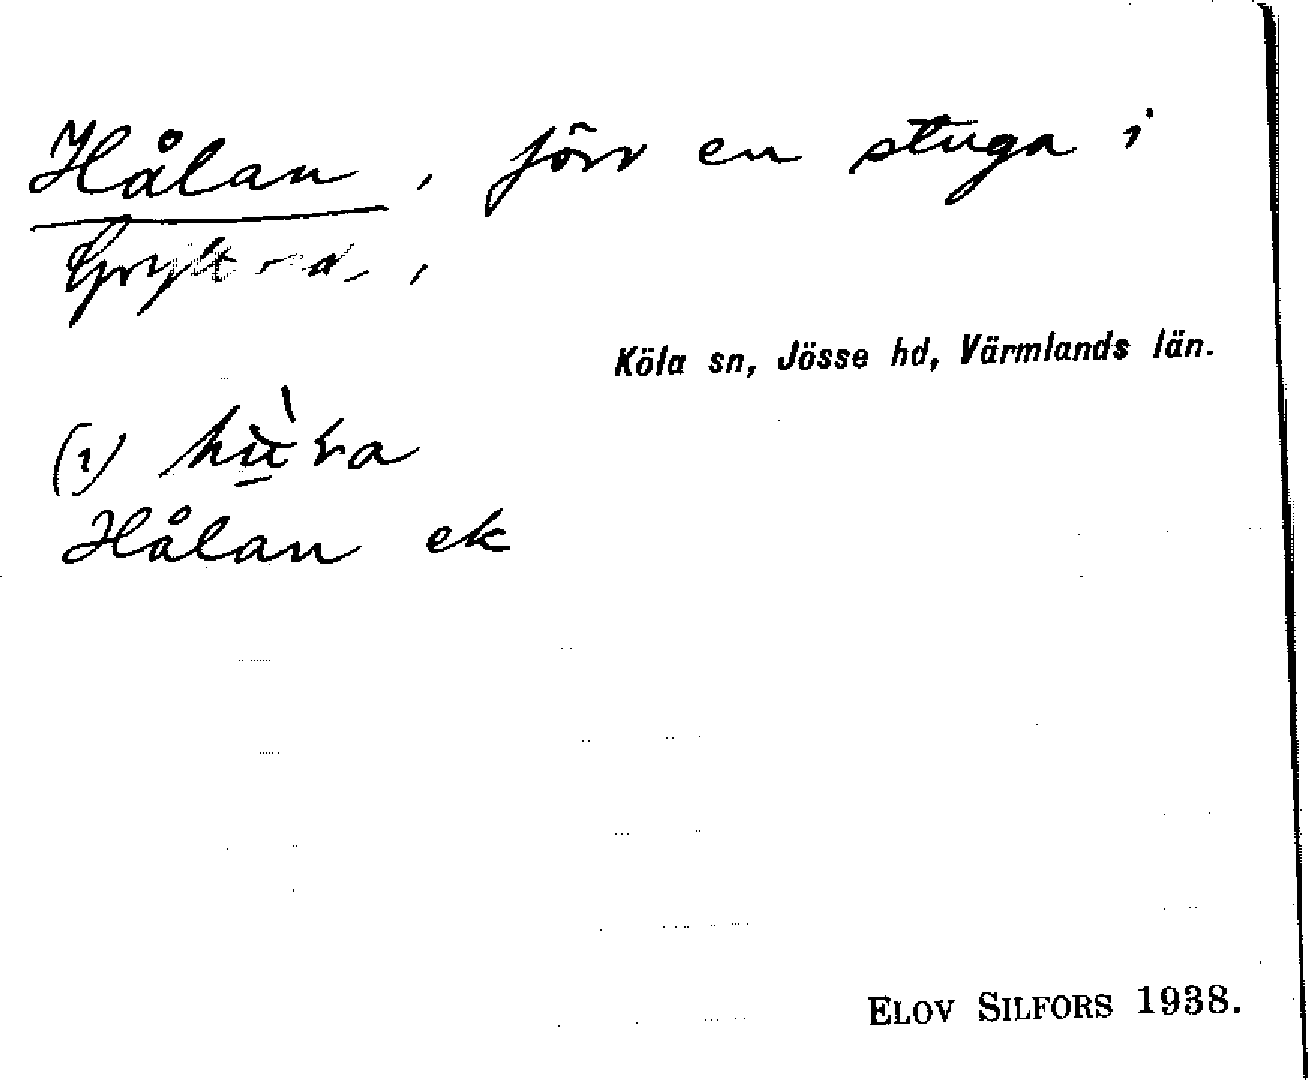 Hålan, förr en stuga i
Köla sn, Jösse hd, Värmlands län.
(1)
Hålan ek
ELOV SILFORS 1938.